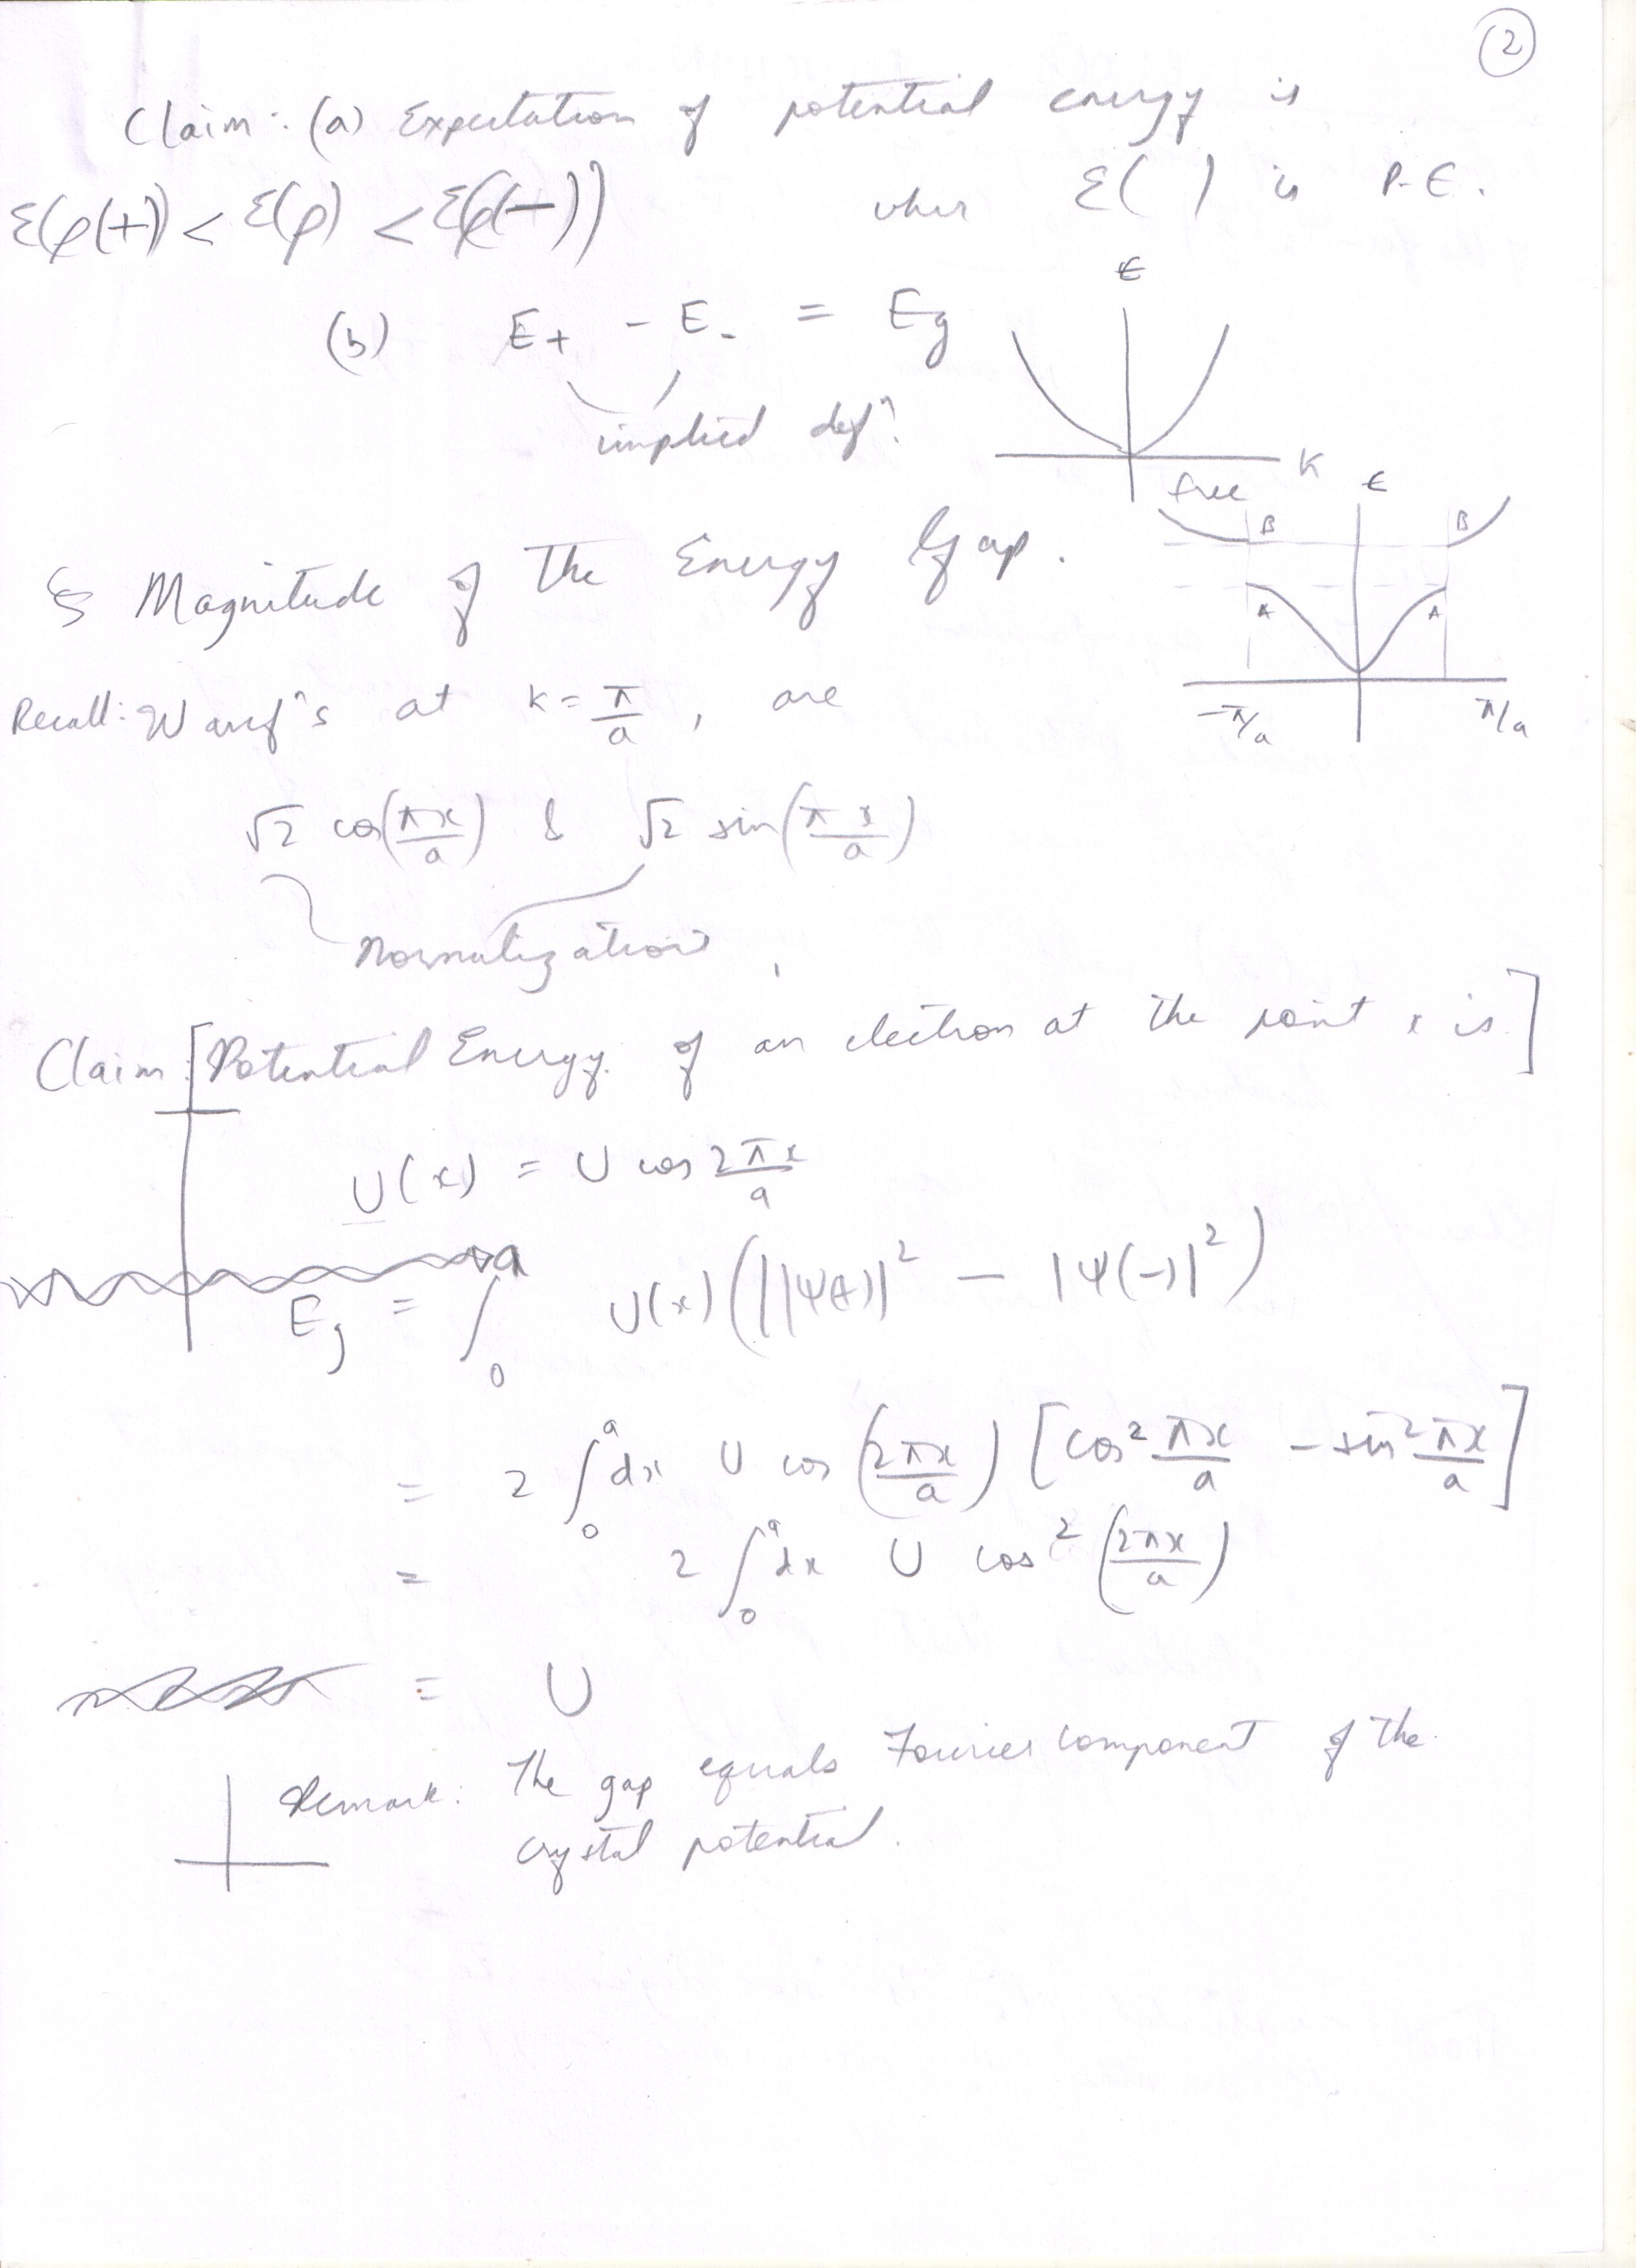 ②
Claim: (a) Expectation of potential energy is
ε(ρ(+)) < ε(ρ) < ε(ρ(-)) where ε( ) is P.E.
(b) E+ - E- = Eg
implied defⁿ.
ε
K
free
§ Magnitude of the Energy Gap.
ε
B B
A A
-π/a π/a
Recall: Wavefⁿs at k = π/a, are
√2 cos(πx/a) & √2 sin(πx/a)
Normalization
Claim [Potential Energy of an electron at the point x is]
U(x) = U cos 2πx/a
Eg = ∫₀ᵃ U(x) (||Ψ(+)|² - |Ψ(-)|²)
= 2 ∫₀ᵃ dx U cos (2πx/a) [cos² πx/a - sin² πx/a]
= 2 ∫₀ᵃ dx U cos² (2πx/a)
= U
Remark: The gap equals Fourier component of the
crystal potential.